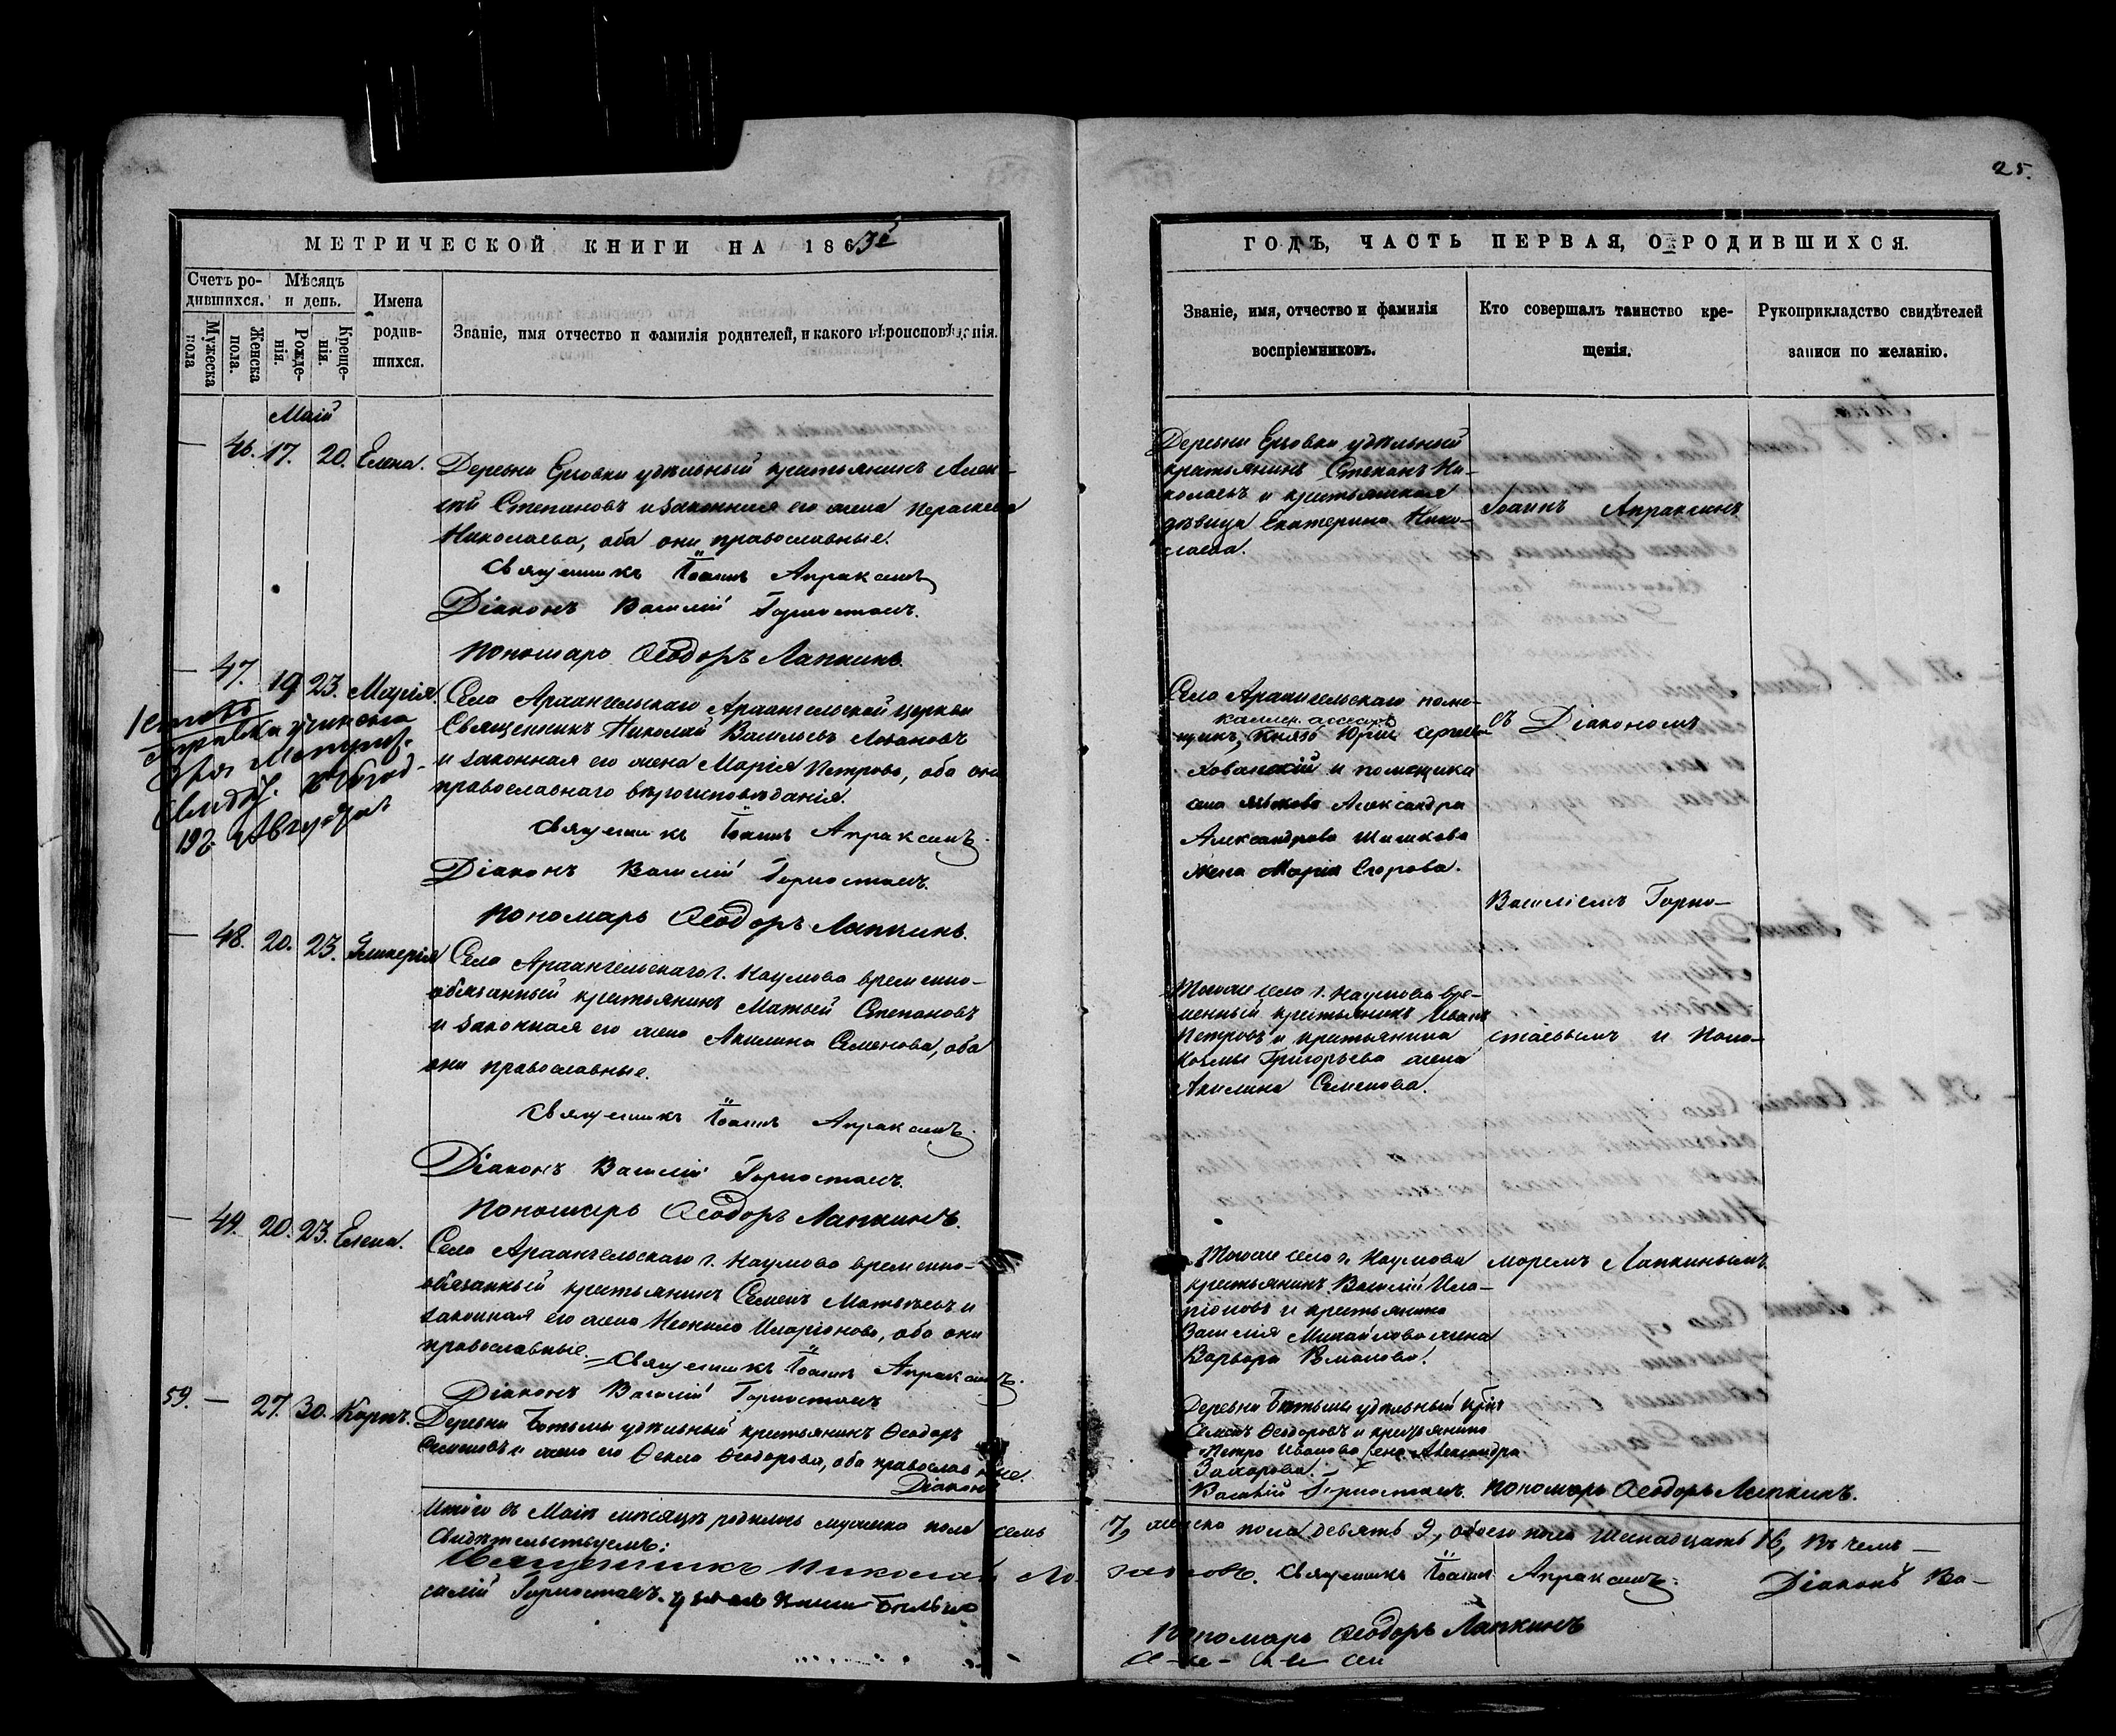 25.
МЕТРИЧЕСКОЙ КНИГИ НА 1863й
Счетъ ро-
дившихся.
Мѣсяцъ
и день.
Мужеска
пола
Женска
пола.
Рожде-
нія.
Креще-
нія.
Имена
родив-
шихся.
Званіе, имя отчество и фамилія родителей, и какого вѣроисповѣданія.
Маій
— 46. 17. 20. Елена.
Деревни удѣльный крестьянинъ Алек-
сѣй Степановъ и законная его жена Параскева
Николаева, оба они православные.
Священникъ Іоаннъ Апраксинъ
Діаконъ Василій Горностаевъ.
Пономарь Ѳеодоръ Лапкинъ.
— 47. 19 23. Марія
Села Архангельскаго Архангельской церкви
Священникъ Николай Васильевъ
и законная его жена Марія Петрова, оба они
православнаго вѣроисповѣданія.
Священникъ Іоаннъ Апраксинъ.
Діаконъ Василій Горностаевъ.
Пономарь Ѳеодоръ Лапкинъ.
— 48. 20. 23. Гликерія
Села Архангельскаго г. Наумова временно-
обязанный крестьянинъ Матвей Степановъ
и законная его жена Акилина Семенова, оба
они православные.
Священникъ Іоаннъ Апраксинъ.
Діаконъ Василій Горностаевъ.
Пономарь Ѳеодоръ Лапкинъ.
— 49. 20. 23. Елена.
Села Архангельскаго г. Наумова временно-
обязанный крестьянинъ Семенъ Матвѣевъ и
законная его жена Неонила Иларіонова, оба они
православные. Священникъ Іоаннъ Апраксинъ.
Діаконъ Василій Горностаевъ
59. — 27. 30. Карпъ.
Деревни Ботьмы удѣльный крестьянинъ Ѳеодоръ
Семеновъ и жена его Ѳекла Ѳеодорова, оба православные.
Діаконъ
Итого въ Маіѣ мѣсяцѣ родилось мужеска пола семь
Свидѣтельствуемъ:
Священникъ Николай
силій Горностаевъ.
ГОДЪ, ЧАСТЬ ПЕРВАЯ, О РОДИВШИХСЯ.
Званіе, имя, отчество и фамилія
воспріемниковъ.
Кто совершалъ таинство кре-
щенія.
Рукоприкладство свидѣтелей
записи по желанію.
Деревни удѣльный
крестьянинъ Степанъ Ни-
колаевъ и крестьянская
дѣвица Екатерина Нико-
лаева.
Іоаннъ Апраксинъ
Села Архангельскаго поме-
щикъ, Князь Юрій
Хованскій и помещика
села Александра
Александрова Шишкова
жена Марія Егорова.
съ Діакономъ
Василіемъ Горно-
Тогоже села г. Наумова вре-
менный крестьянинъ Иванъ
Петровъ и крестьянина
Козмы Григорьева жена
Акилина Семенова.
стаевымъ и Поно-
Тогоже села г. Наумова
крестьянинъ Василій Ила-
ріоновъ и крестьянина
Василія Михайлова жена
Варвара
маремъ Лапкинымъ
Деревни Ботьмы удѣльный
Семенъ Ѳеодоровъ и крестьянина
Петра Иванова жена Александра
Захарова.
Василій Горностаевъ. Пономарь Ѳеодоръ Лапкинъ.
7, женска пола девять 9, обоего пола шестнадцать 16, въ чемъ —
Священникъ Іоаннъ Апраксинъ. Діаконъ Ва-
Пономарь Ѳеодоръ Лапкинъ